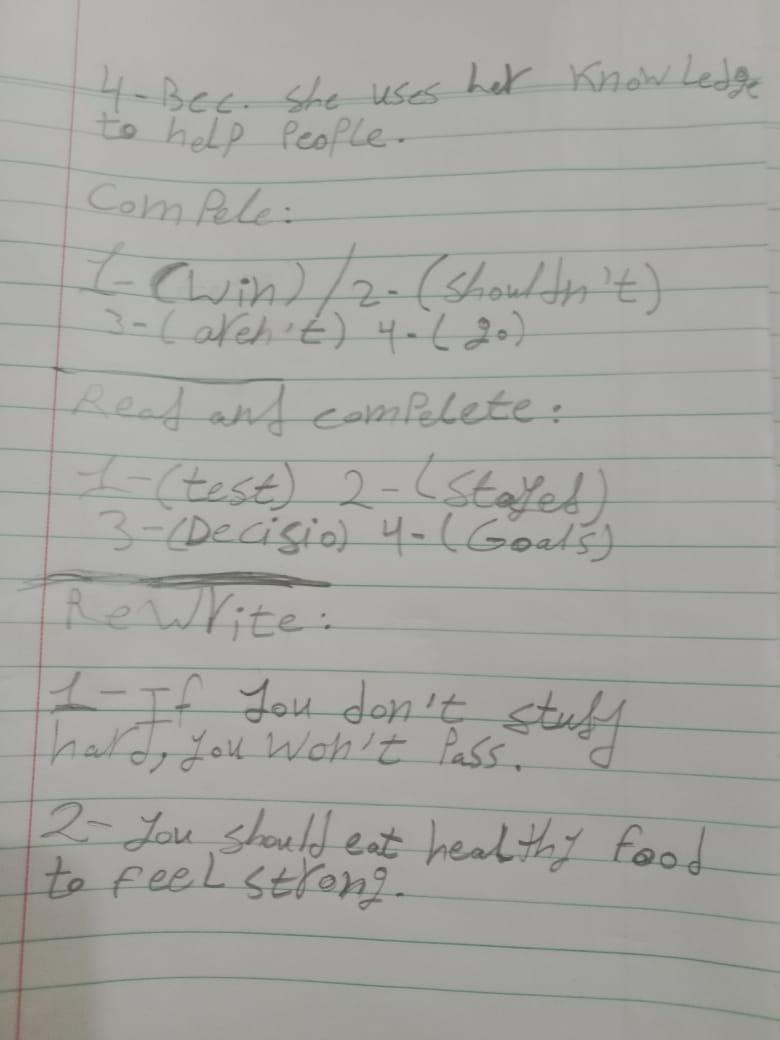 4-Bec. she uses her knowledge
to help people.
Compele:
1-(win)/2-(shouldn't)
3-(aren't) 4-(go)
Read and compelete:
1-(test) 2-(stayed)
3-(Decisio) 4-(Goals)
ReWrite:
1-If you don't study
hard, you won't pass.
2-you should eat healthy food
to feel strong.